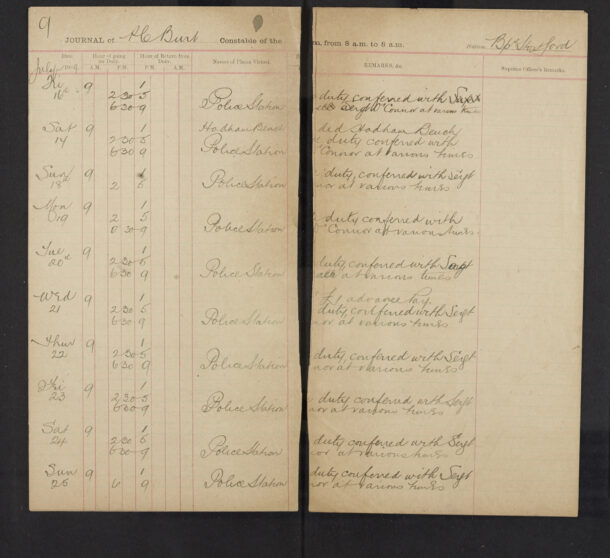 9
JOURNAL of A C Burt Constable of the
m, from 8 a.m. to 8 a.m. Station Bp Stortford
Date. Hour of going on Duty. Hour of Return from Duty. Names of Places Visited. REMARKS, &c. Superior Officer's Remarks.
A.M. P.M. A.M. P.M.
July
Fri 9 1
16 2-30 5 duty conferred with
6 30 9 Police Station Connor at various times
Sat 9 1 Hadham Bench ded Hadham Bench
2 30 5 duty conferred with
6 30 9 Police Station Connor at various times
Sun 9 duty, conferred with Seigt
18 2 5 Police Station nor at various times
Mon 9 1
19 2 5 duty conferred with
6 30 9 Police Station Connor at various times
Tue 9 1
20 2 30 5 duty, conferred with
6 30 9 Police Station at various times
Wed 9 1 £1 advance Pay
21 2 30 5 duty, conferred with Seigt
6 30 9 Police Station nor at various times
Thur 9 1
22 2-30 5 duty, conferred with Seigt
6 30 9 Police Station nor at various times
Fri 9 1
23 2 30 5 duty, conferred with Seigt
6 30 9 Police Station nor at various times
Sat 9 1
24 2 30 5 duty, conferred with Seigt
6 30 9 Police Station nor at various times
Sun 9 1 duty conferred with Seigt
25 6 9 Police Station nor at various times